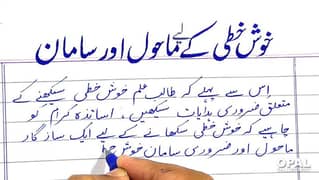 خوش خطی کے لیے ماحول اور سامان
اِس سے پہلے کہ طالب علم خوش خطی سیکھنے کے
متعلق ضروری ہدایات سیکھیں۔ اساتذہ کرام کو
چاہیے کہ خوش خطی سکھانے کے لیے ایک ساز گار
ماحول اور ضروری سامان خوش خط
OPAL